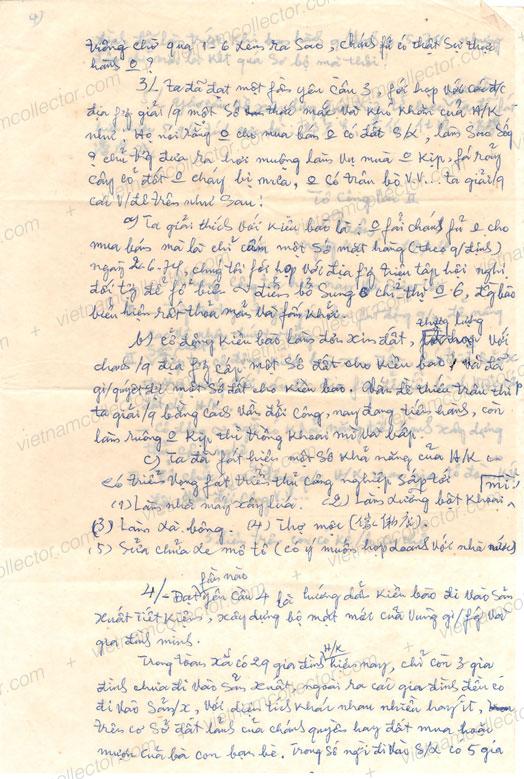 4)
trông chờ qua 1-6 xem ra sao, chánh fủ có thật sự thực
hành o?
3/. Ta đã đạt một fần yêu cầu 3, fối hợp với các đ/c
địa fg giải/q một số thắc mắc và khó khăn của H/K
như: Họ nói rằng o cho mua bán o có đất S/X, làm sao sống
đưa ra hơi muộng làm vụ mùa o kịp, fá rẫy
cây cỏ đốt o cháy bị mưa, o có trâu bò V.V... ta giải/q
các V/đề trên như sau:
a) Ta giải thích với Kiều bào là: o fải chánh fủ o cho
mua bán mà là chỉ cấm một số mặt hàng (theo q/định)
ngày 2-6-74, chúng tôi fối hợp với địa fg triệu tập hội nghị
để fổ biến điểm bổ sung chỉ thị o-6, Kiều bào
biểu hiện rất thỏa mãn và fấn khởi.
b) cổ động Kiều bào làm đơn xin đất, thương lượng với
chánh/q địa fg cấp một số đất cho Kiều bào, và đã
gi/quyết được một số đất cho Kiều bào. Vấn đề thiếu trâu thì
ta giải/q bằng cách vần đổi công, nay đang tiến hành, còn
làm ruộng o kịp thì trồng khoai mì và bắp.
c) Ta đã fát hiện một số khả năng của H/K
có triển vọng fát triển thủ công nghiệp sắp tới
(1) Làm nhà máy xay lúa. (2) Làm xưởng bột khoai mì
(3) Làm xà bông. (4) Thợ mộc
(5) Sửa chữa xe mô tô (có ý muốn hợp doanh với nhà nước)
4/- Đạt fần nào yêu cầu 4 là hướng dẫn Kiều bào đi vào sản
xuất tiết kiệm, xây dựng bộ mặt mới của vùng gi/fóng và
gia đình mình.
Trong toàn xã có 29 gia đình H/K hiện nay, chỉ còn 3 gia
đình chưa đi vào sản xuất, ngoài ra các gia đình đều có
đi vào sản/x, với diện tích khác nhau nhiều hay ít,
trên cơ sở đất lãnh của chánh quyền hay đất mua hoặc
mượn của bà con bạn bè. Trong số người đi vào S/X có 5 gia